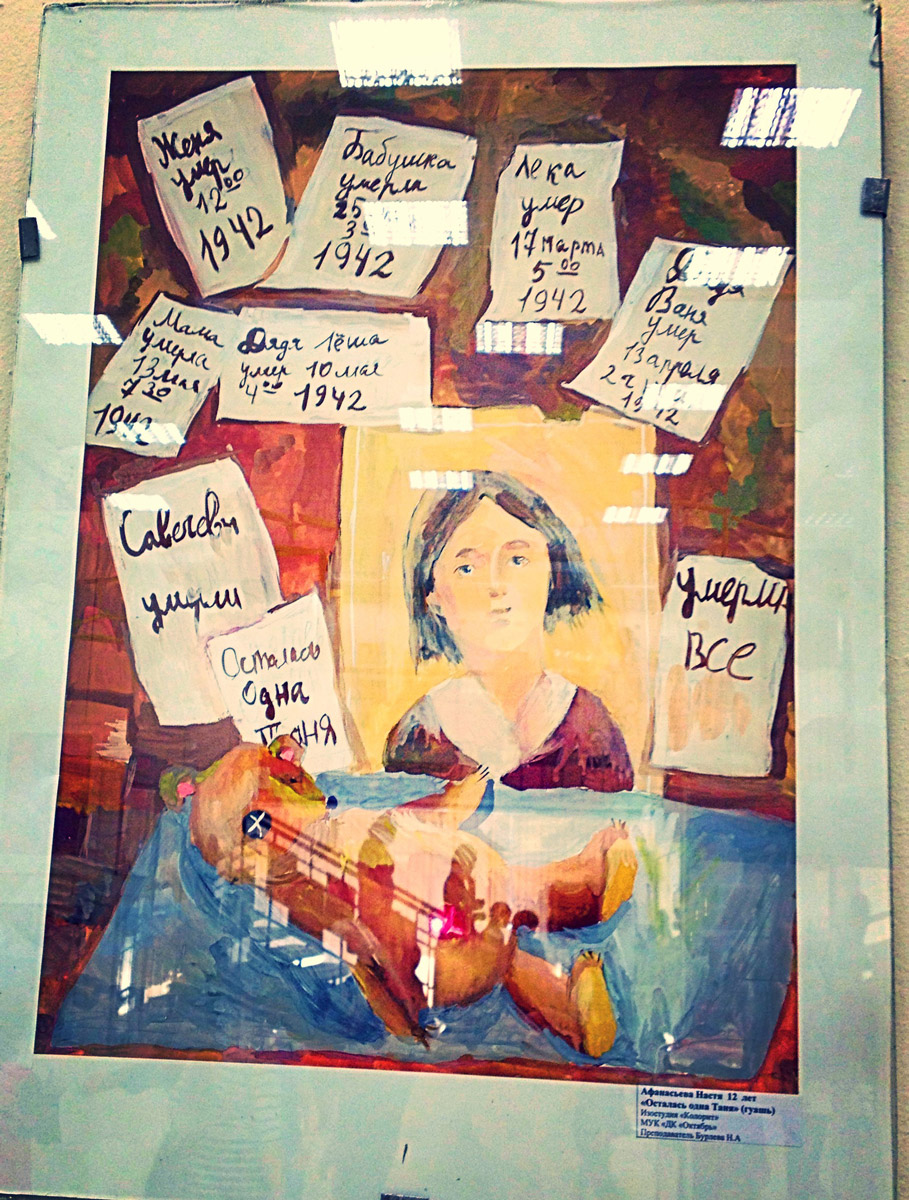 Женя
умер
12 00
1942
Бабушка
умерла
25
3
1942
Лека
умер
17 марта
5 00
1942
Дядя
Ваня
умер
13 апреля
2 ч
1942
Мама
умерла
13 мая
7 30
1942
Дядя Лёша
умер 10 мая
4 00 1942
Савечевы
умерли
Осталась
Одна
Таня
умерли
Все
Афанасьева Настя 12 лет
«Осталась одна Таня» (гуашь)
Изостудия «Колорит»
МУК «ДК «Октябрь»
Преподаватель Бурлева Н.А